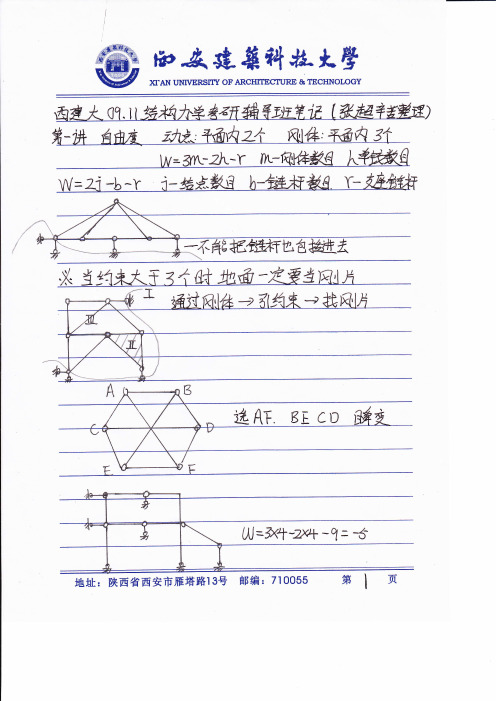 西安建筑科技大学
XI'AN UNIVERSITY OF ARCHITECTURE & TECHNOLOGY
西建大09.11结构力学考研辅导班笔记(张超辛苦整理)
第一讲 自由度 动点:平面内2个 刚体:平面内3个
W=3m-2h-r m-刚体数目 h单铰数目
W=2j-b-r j-结点数目 b-链杆数目 r-支座链杆
一不能把链杆也包括进去
※ 当约束大于3个时 地面一定要当刚片
I
通过刚体→引约束→找刚片
III
II
A B
选AF. BE CD 瞬变
C D
E F
W=3×4-2×4-9=-5
地址:陕西省西安市雁塔路13号 邮编:710055 第 1 页